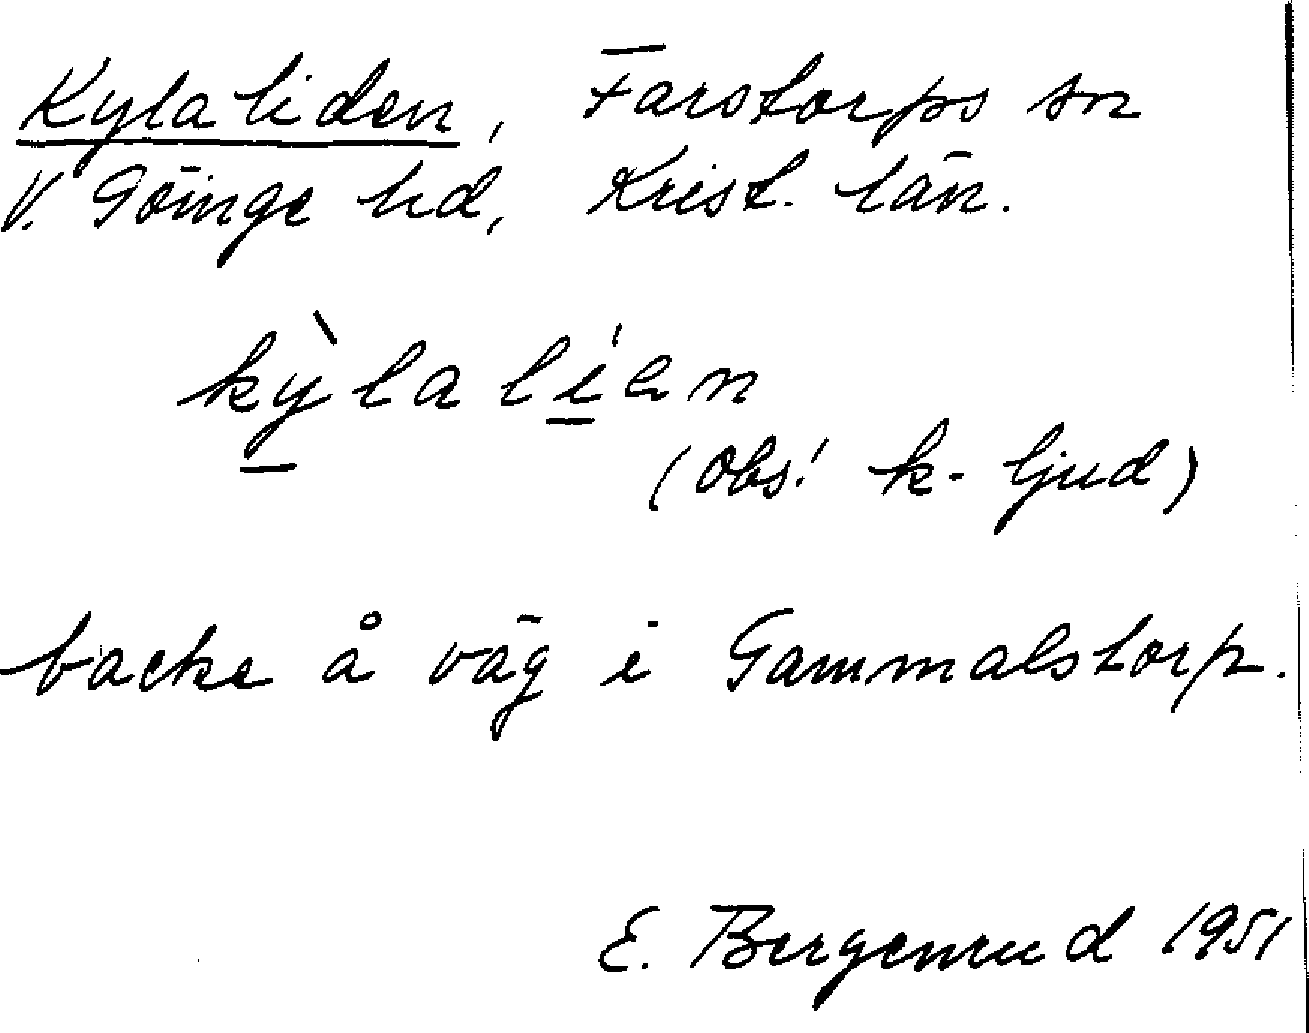 Kylaliden, Farstorps sn
V. Göinge hd, Krist. län.
kỳlalíen
(Obs! k-ljud)
backe å väg i Gammalstorp.
E. Bergenrud 1951